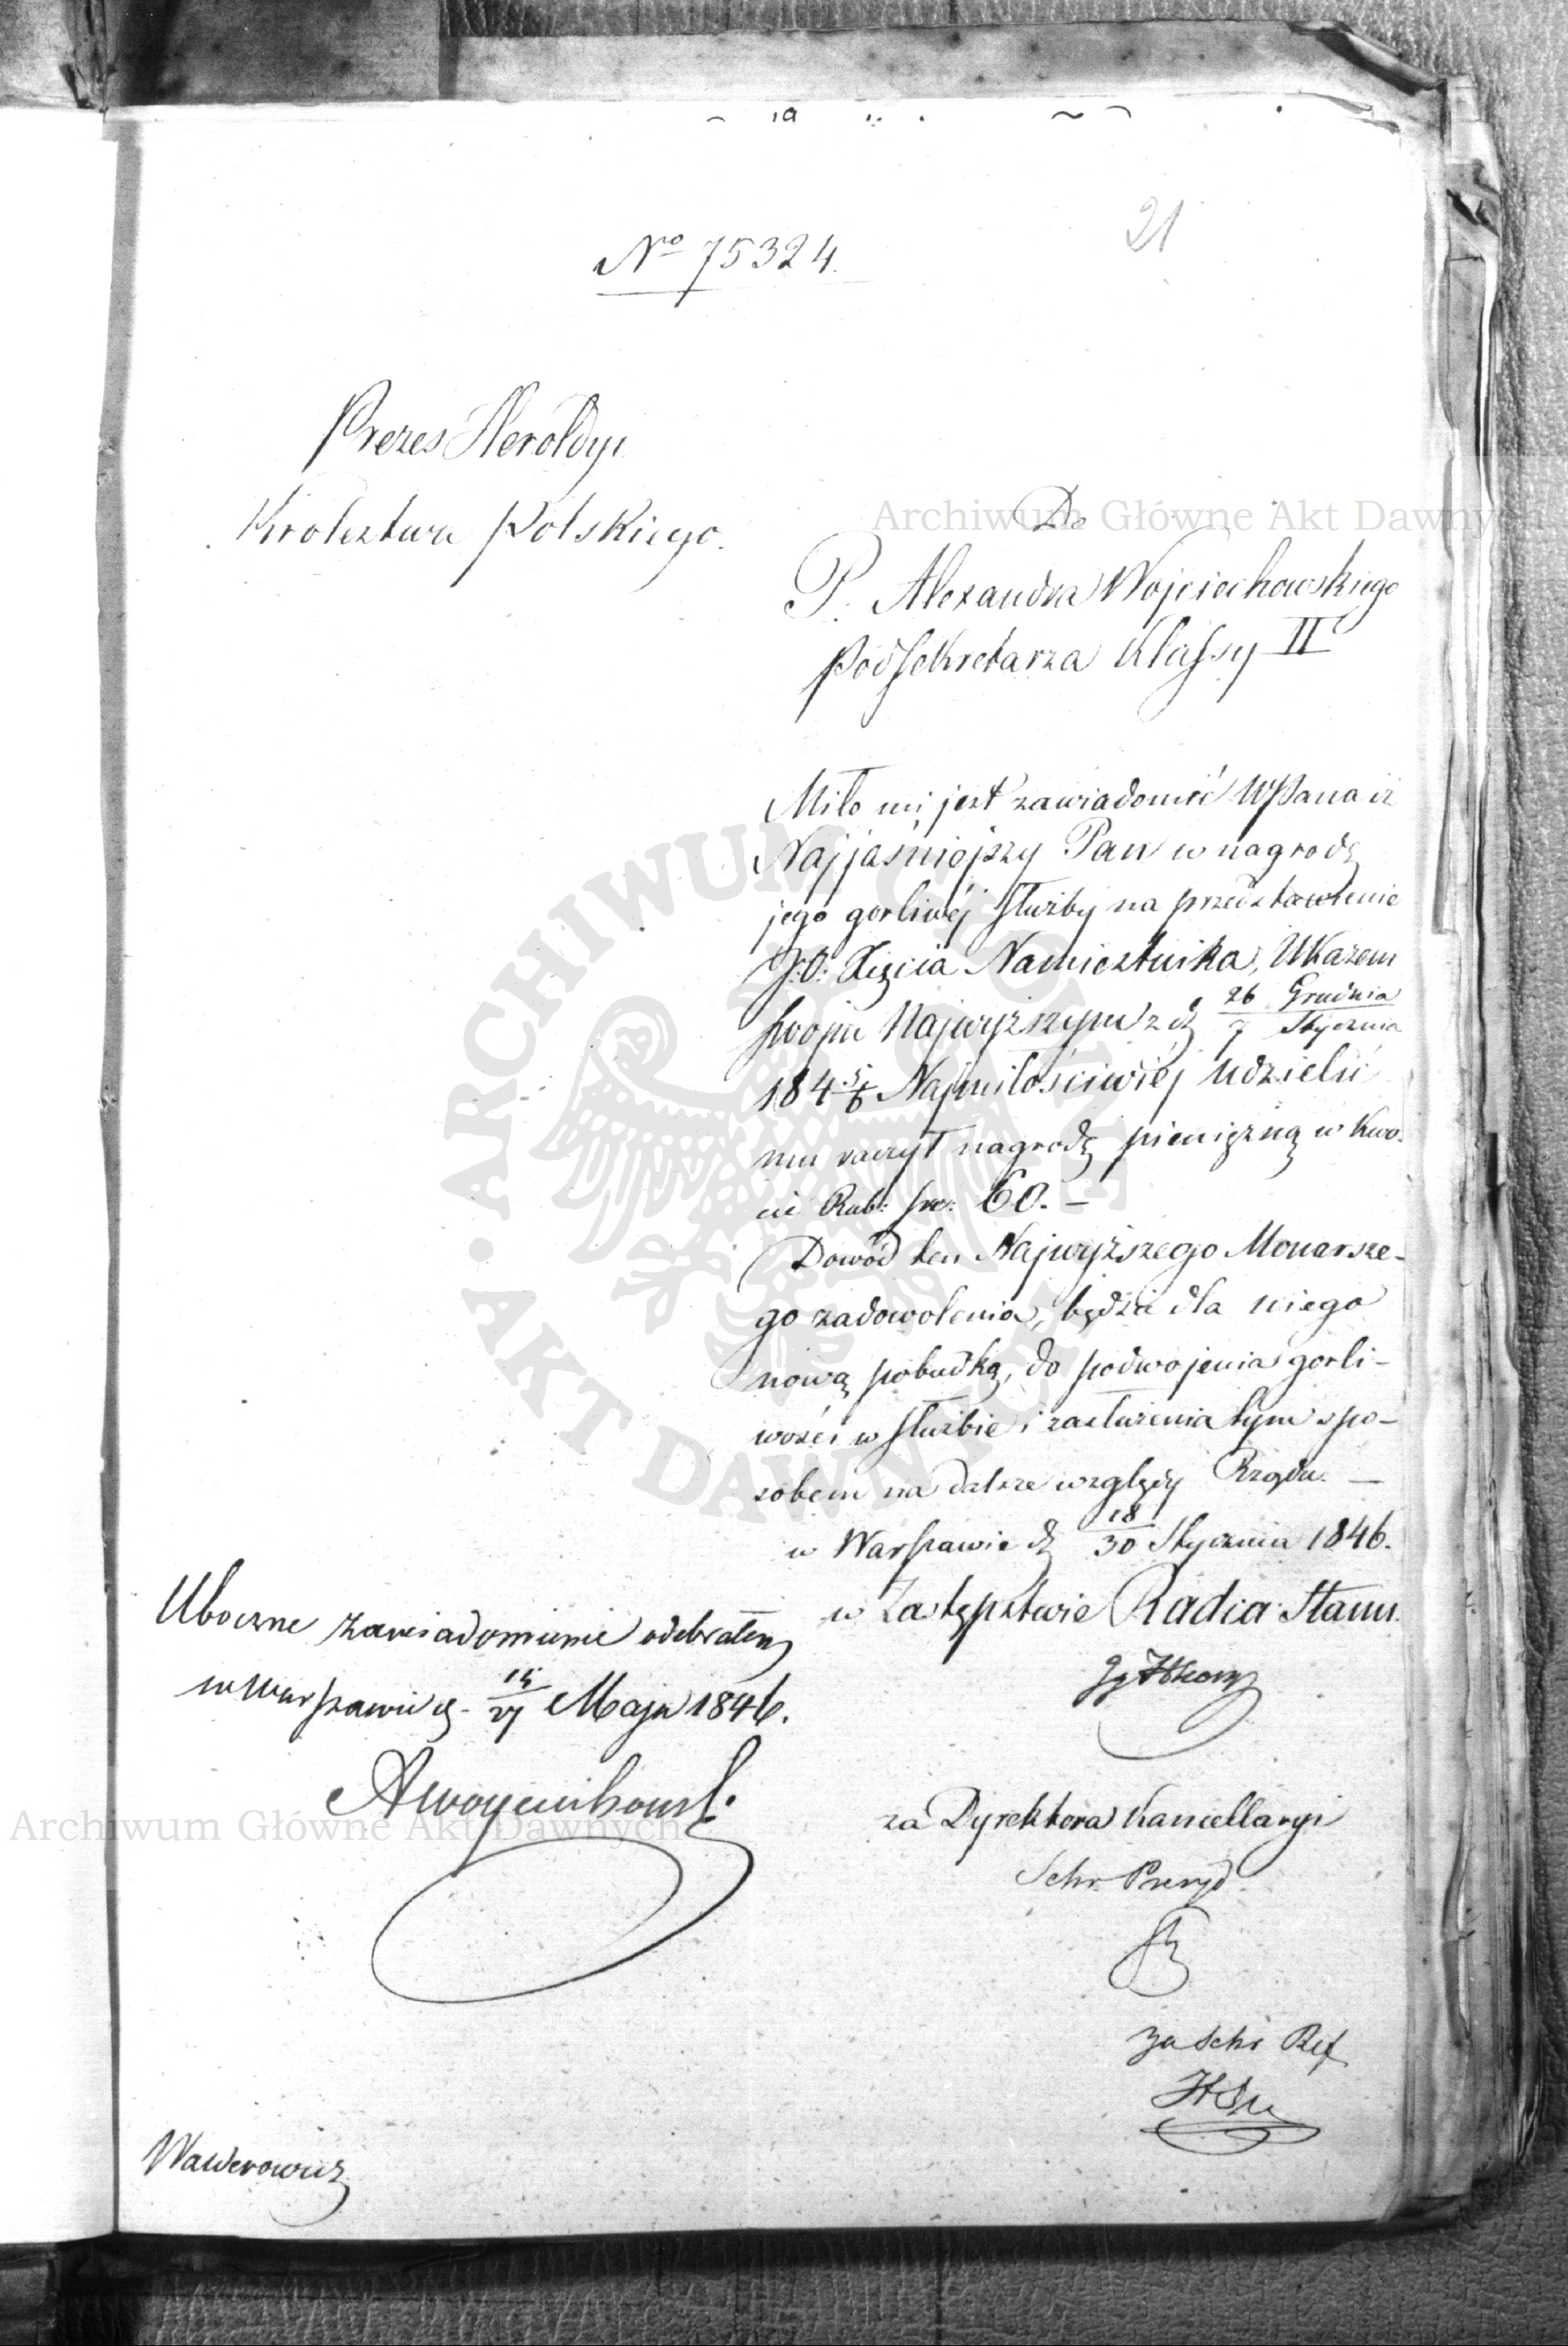 21
No 75324.
Prezes Heroldyi
Krolestwa Polskiego.
Do
P. Alexandra Wojciechowskiego
Podsekretarza Klassy II
Miło mi jest zawiadomić WPana iż
Najjaśniejszy Pan w nagrodę
jego gorliwéj służby na przedstawienie
J: O: Xięcia Namiestnika, Ukazem
swojm Najwyższym z d 26 Grudnia / 7 Stycznia
184 5/6 Najmiłościwiéj udzielić
mu raczył nagrodę pieniężną w kwo-
cie Rub: sr: 60. —
Dowód ten Najwyższego Monarsze-
go zadowolenia, będzie dla niego
nową pobudką, do podwojenia gorli-
wości w służbie i zasłużenia tym spo-
sobem na dalsze względy Rządu. —
w Warszawie d 18/30 Stycznia 1846.
w Zastępstwie Radca Stanu
Uboczne zawiadomienie odebrałem
w Warszawie d. 15/27 Maja 1846.
AWoyciechowski
za Dyrektora Kancellaryi
Sekr. Prezyd.
za Sekr Ref
Wawerowicz
Archiwum Główne Akt Dawnych
Archiwum Główne Akt Dawnych
ARCHIWUM GŁÓWNE AKT DAWNYCH